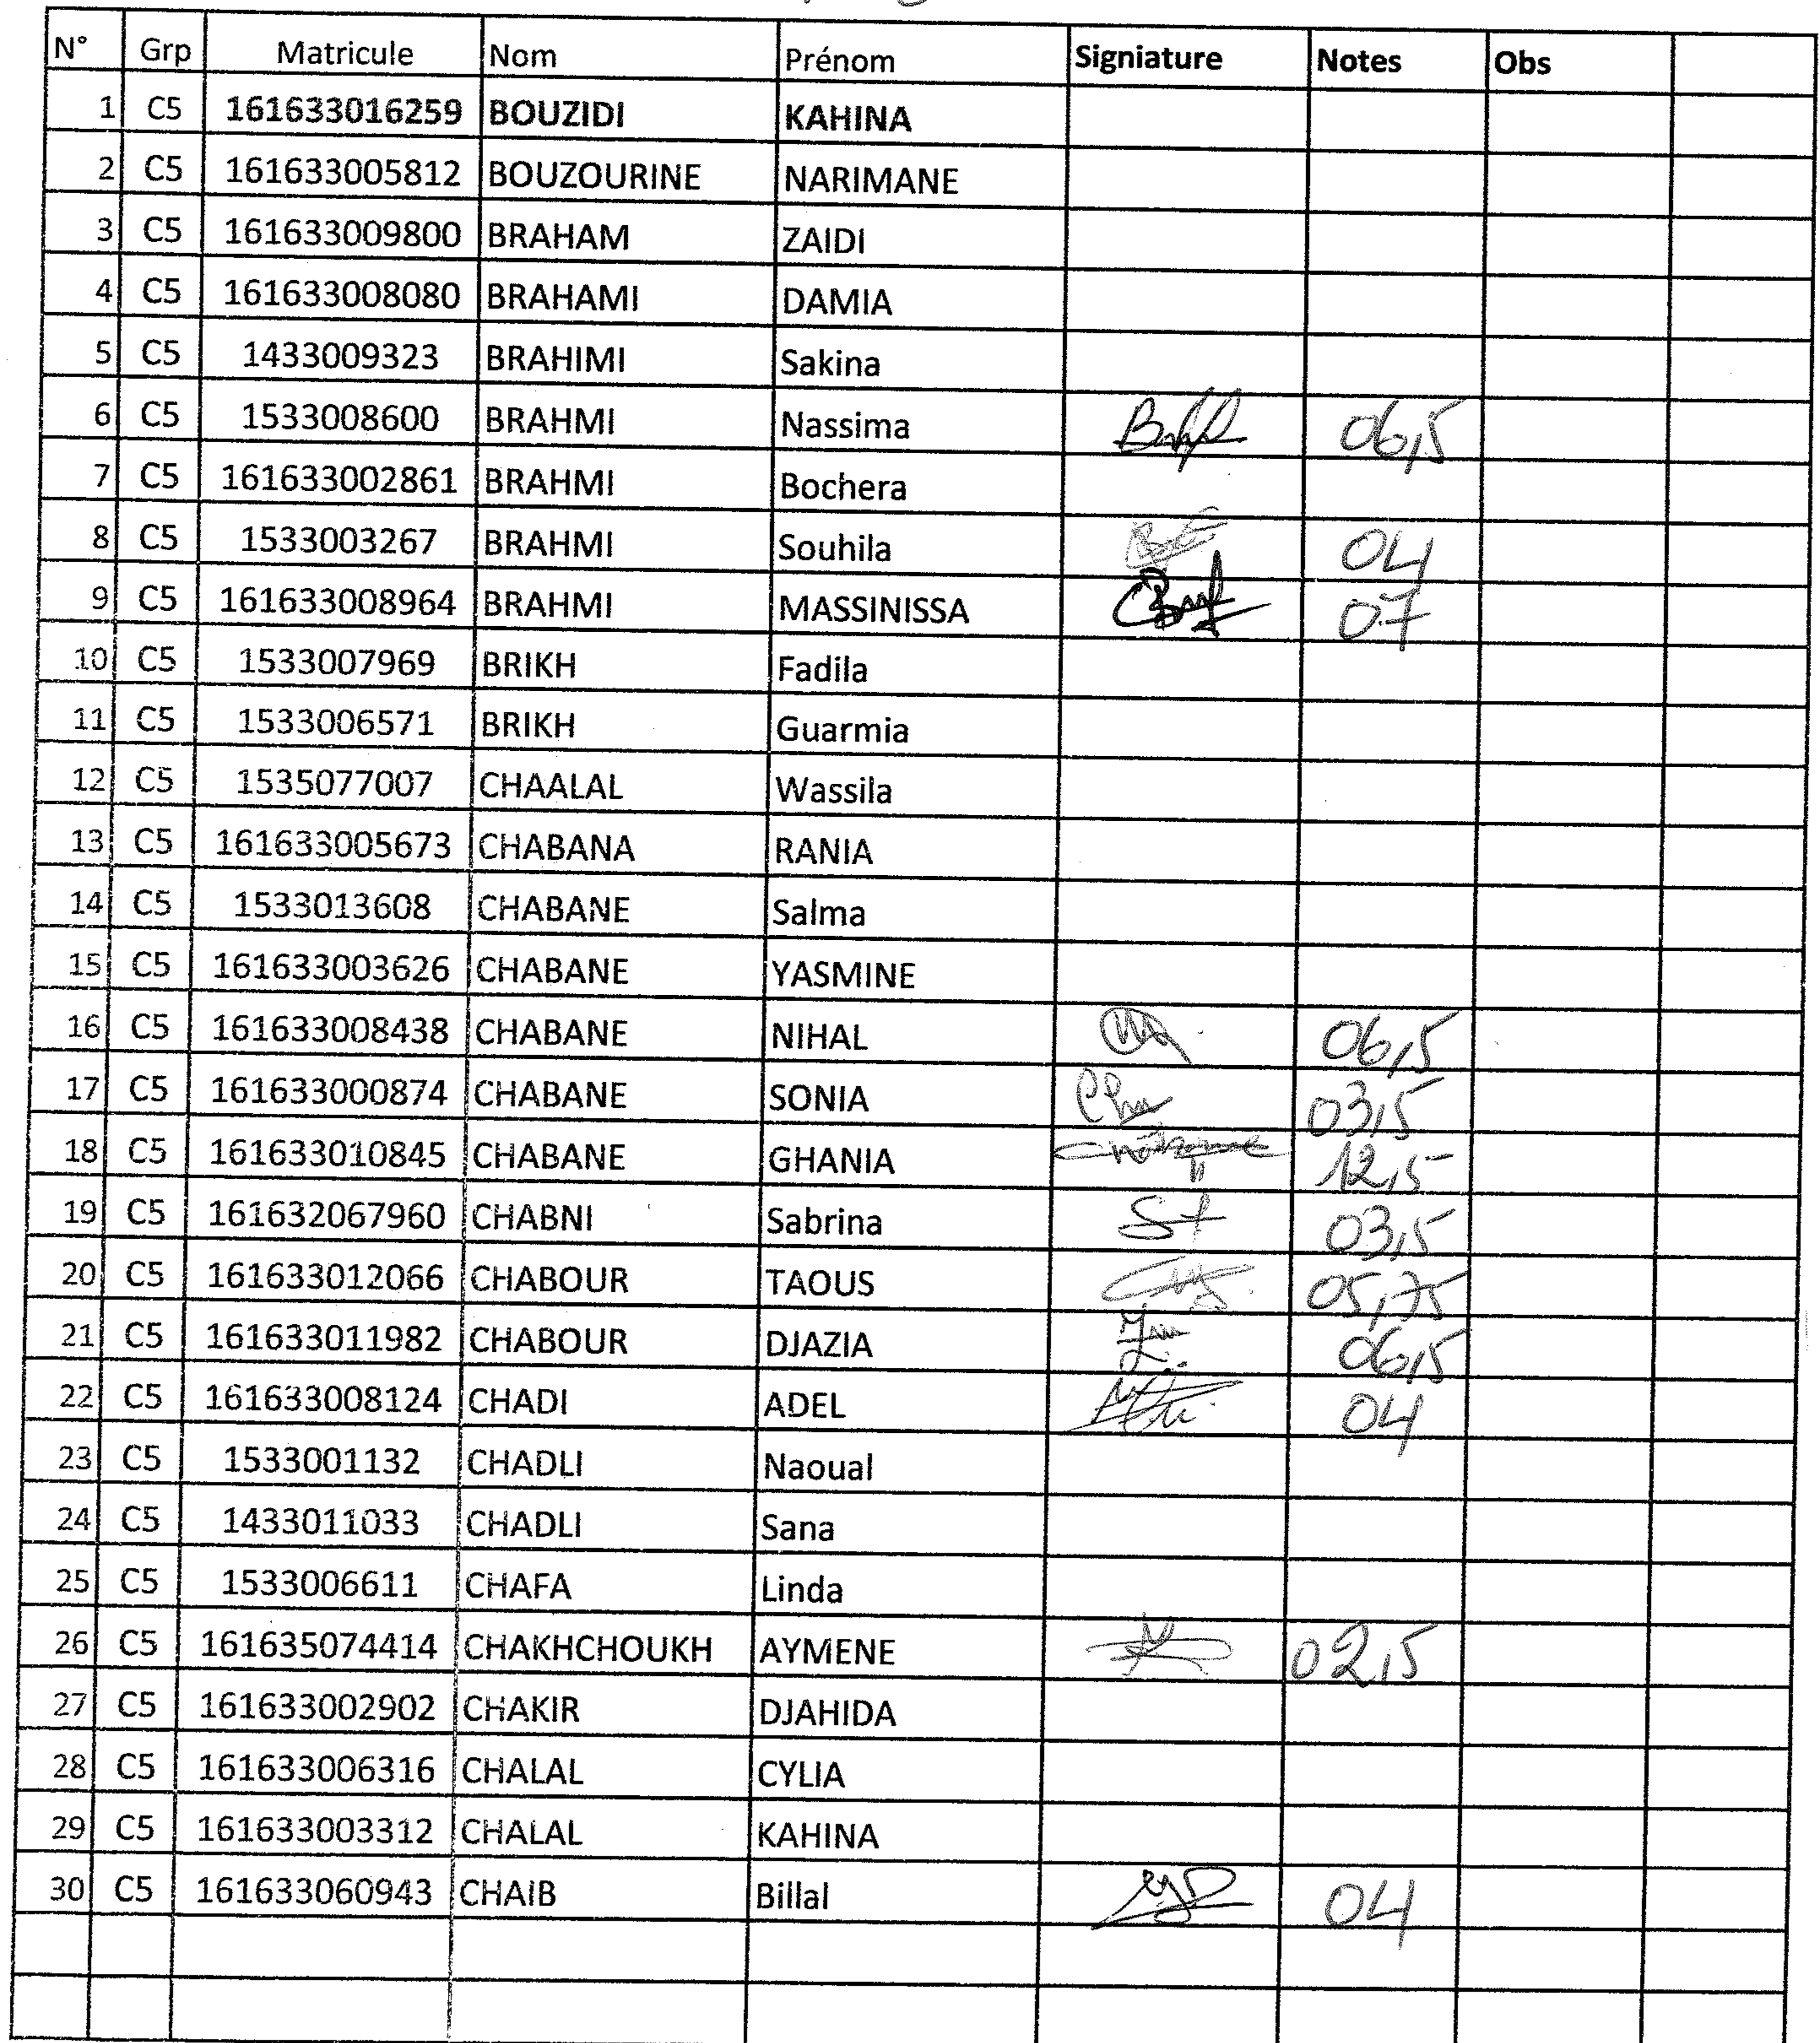 N° Grp Matricule Nom Prénom Signiature Notes Obs
1 C5 161633016259 BOUZIDI KAHINA
2 C5 161633005812 BOUZOURINE NARIMANE
3 C5 161633009800 BRAHAM ZAIDI
4 C5 161633008080 BRAHAMI DAMIA
5 C5 1433009323 BRAHIMI Sakina
6 C5 1533008600 BRAHMI Nassima 06,5
7 C5 161633002861 BRAHMI Bochera
8 C5 1533003267 BRAHMI Souhila 04
9 C5 161633008964 BRAHMI MASSINISSA 07
10 C5 1533007969 BRIKH Fadila
11 C5 1533006571 BRIKH Guarmia
12 C5 1535077007 CHAALAL Wassila
13 C5 161633005673 CHABANA RANIA
14 C5 1533013608 CHABANE Salma
15 C5 161633003626 CHABANE YASMINE
16 C5 161633008438 CHABANE NIHAL 06,5
17 C5 161633000874 CHABANE SONIA 03,5
18 C5 161633010845 CHABANE GHANIA 12,5
19 C5 161632067960 CHABNI Sabrina 03,5
20 C5 161633012066 CHABOUR TAOUS 05,75
21 C5 161633011982 CHABOUR DJAZIA 06,5
22 C5 161633008124 CHADI ADEL 04
23 C5 1533001132 CHADLI Naoual
24 C5 1433011033 CHADLI Sana
25 C5 1533006611 CHAFA Linda
26 C5 161635074414 CHAKHCHOUKH AYMENE 02,5
27 C5 161633002902 CHAKIR DJAHIDA
28 C5 161633006316 CHALAL CYLIA
29 C5 161633003312 CHALAL KAHINA
30 C5 161633060943 CHAIB Billal 04